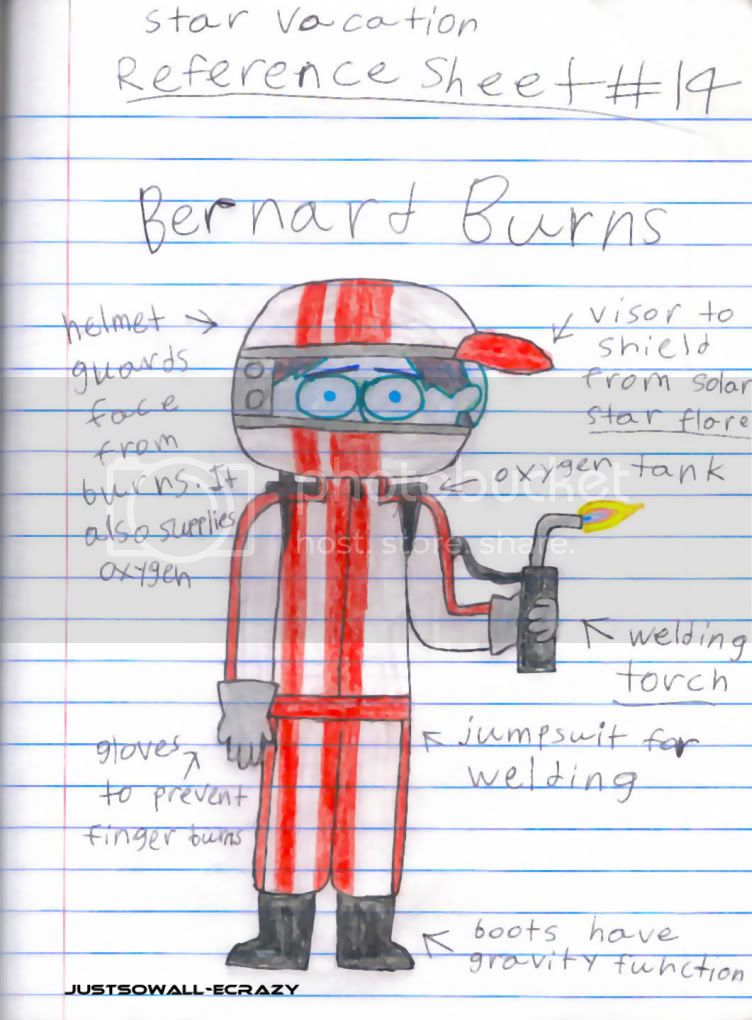 star vacation
Reference Sheet #14
Bernard Burns
helmet
guards
face
from
burns. It
also supplies
oxygen
visor to
shield
from solar
star flare
oxygen tank
photobucket
host. store. share.
welding
torch
gloves
to prevent
finger burns
jumpsuit for
welding
boots have
gravity function
JUSTSOWALL-ECRAZY